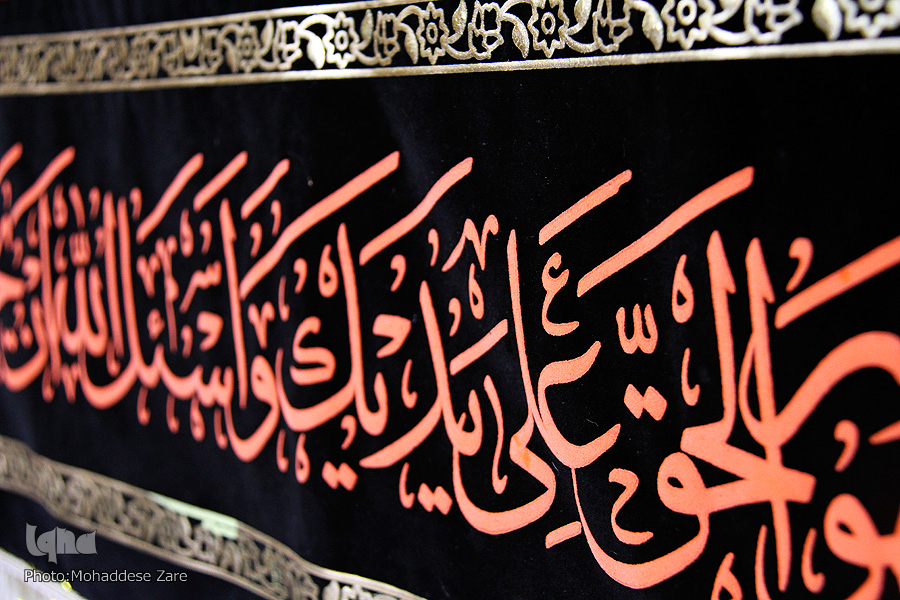 الْحَقِّ عَلي يَدَيْكَ وَاَسْئَلُ اللهَ اَنْ
iqna
Photo:Mohaddese Zare